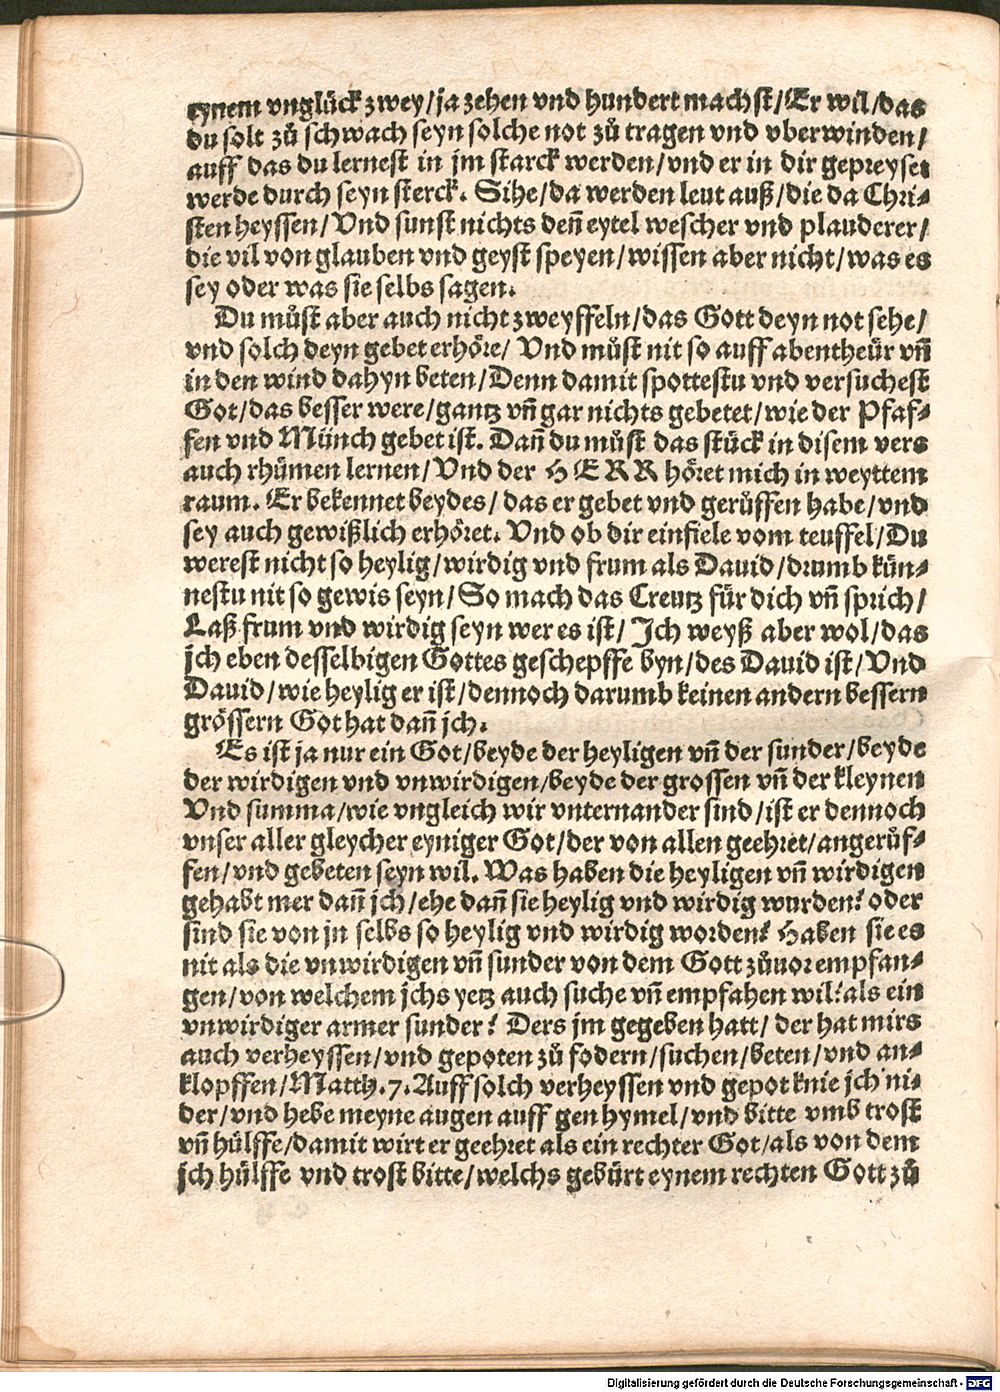 eynem vnglück zwey/ja zehen vnd hundert machst/Er wil/das
du solt zů schwach seyn solche not zů tragen vnd vberwinden/
auff das du lernest in jm starck werden/vnd er in dir gepreyset
werde durch seyn sterck. Sihe/da werden leut auß/die da Chri-
sten heyssen/Vnd sunst nichts deñ eytel wescher vnd plauderer/
die vil von glauben vnd geyst speyen/wissen aber nicht/was es
sey oder was sie selbs sagen.
Du můst aber auch nicht zweyffeln/das Gott deyn not sehe/
vnd solch deyn gebet erhöre/ Vnd můst nit so auff abentheür vñ
in den wind dahyn beten/Denn damit spottestu vnd versuchest
Got/das besser were/gantz vñ gar nichts gebetet/wie der Pfaf-
fen vnd Münch gebet ist. Dañ du můst das stück in disem vers
auch rhümen lernen/Vnd der HERR höret mich in weyttem
raum. Er bekennet beydes/das er gebet vnd gerüffen habe/vnd
sey auch gewißlich erhöret. Vnd ob dir einfiele vom teuffel/Du
werest nicht so heylig/wirdig vnd frum als Dauid/drumb kün-
nestu nit so gewis seyn/So mach das Creutz für dich vñ sprich/
Laß frum vnd wirdig seyn wer es ist/Ich weyß aber wol/das
jch eben desselbigen Gottes geschepffe byn/des Dauid ist/Vnd
Dauid/wie heylig er ist/dennoch darumb keinen andern bessern
grössern Got hat dañ jch.
Es ist ja nur ein Got/beyde der heyligen vñ der sunder/beyde
der wirdigen vnd vnwirdigen/beyde der grossen vñ der kleynen
Vnd summa/wie vngleich wir vnternander sind/ist er dennoch
vnser aller gleycher eyniger Got/der von allen geehret/angerüf-
fen/vnd gebeten seyn wil. Was haben die heyligen vñ wirdigen
gehabt mer dañ jch/ehe dañ sie heylig vnd wirdig wurden? oder
sind sie von jn selbs so heylig vnd wirdig worden? Haben sie es
nit als die vnwirdigen vñ sunder von dem Gott zůuor empfan-
gen/von welchem jchs yetz auch suche vñ empfahen wil? als ein
vnwirdiger armer sunder? Ders jm gegeben hatt/ der hat mirs
auch verheyssen/vnd gepoten zů fodern/suchen/beten/vnd an-
klopffen/Matth.7. Auff solch verheyssen vnd gepot knie jch ni-
der/vnd hebe meyne augen auff gen hymel/vnd bitte vmb trost
vñ hülffe/damit wirt er geehret als ein rechter Got/als von dem
jch hülffe vnd trost bitte/welchs gebürt eynem rechten Gott zů
Digitalisierung gefördert durch die Deutsche Forschungsgemeinschaft - DFG